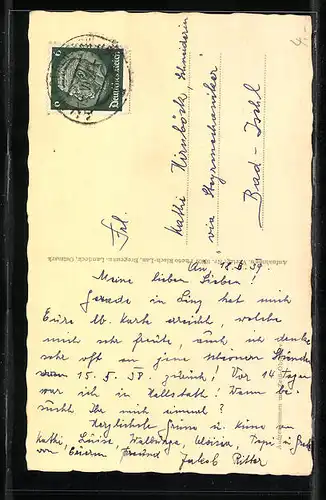 Frl.
Kathi Hirnböck, Schneiderin
via Steyrmechaniker
Bad-Ischl
6 6
Deutsches Reich
Au, 18.6.39.
Meine lieben Lieben!
Gerade in Linz hat mich
Eure lb. Karte erreicht, welche
mich sehr freute, auch ich denke
sehr oft an jene schönen Stunden
vom 15.5.38. zurück! Vor 14 Tagen
war ich in Hallstatt! Wann be-
sucht Ihr mich einmal?
Herzlichste Grüsse u. Küsse an
Kathi, Luise, Walburga, Aloisia,
von Eurem Freund Jakob Ritter